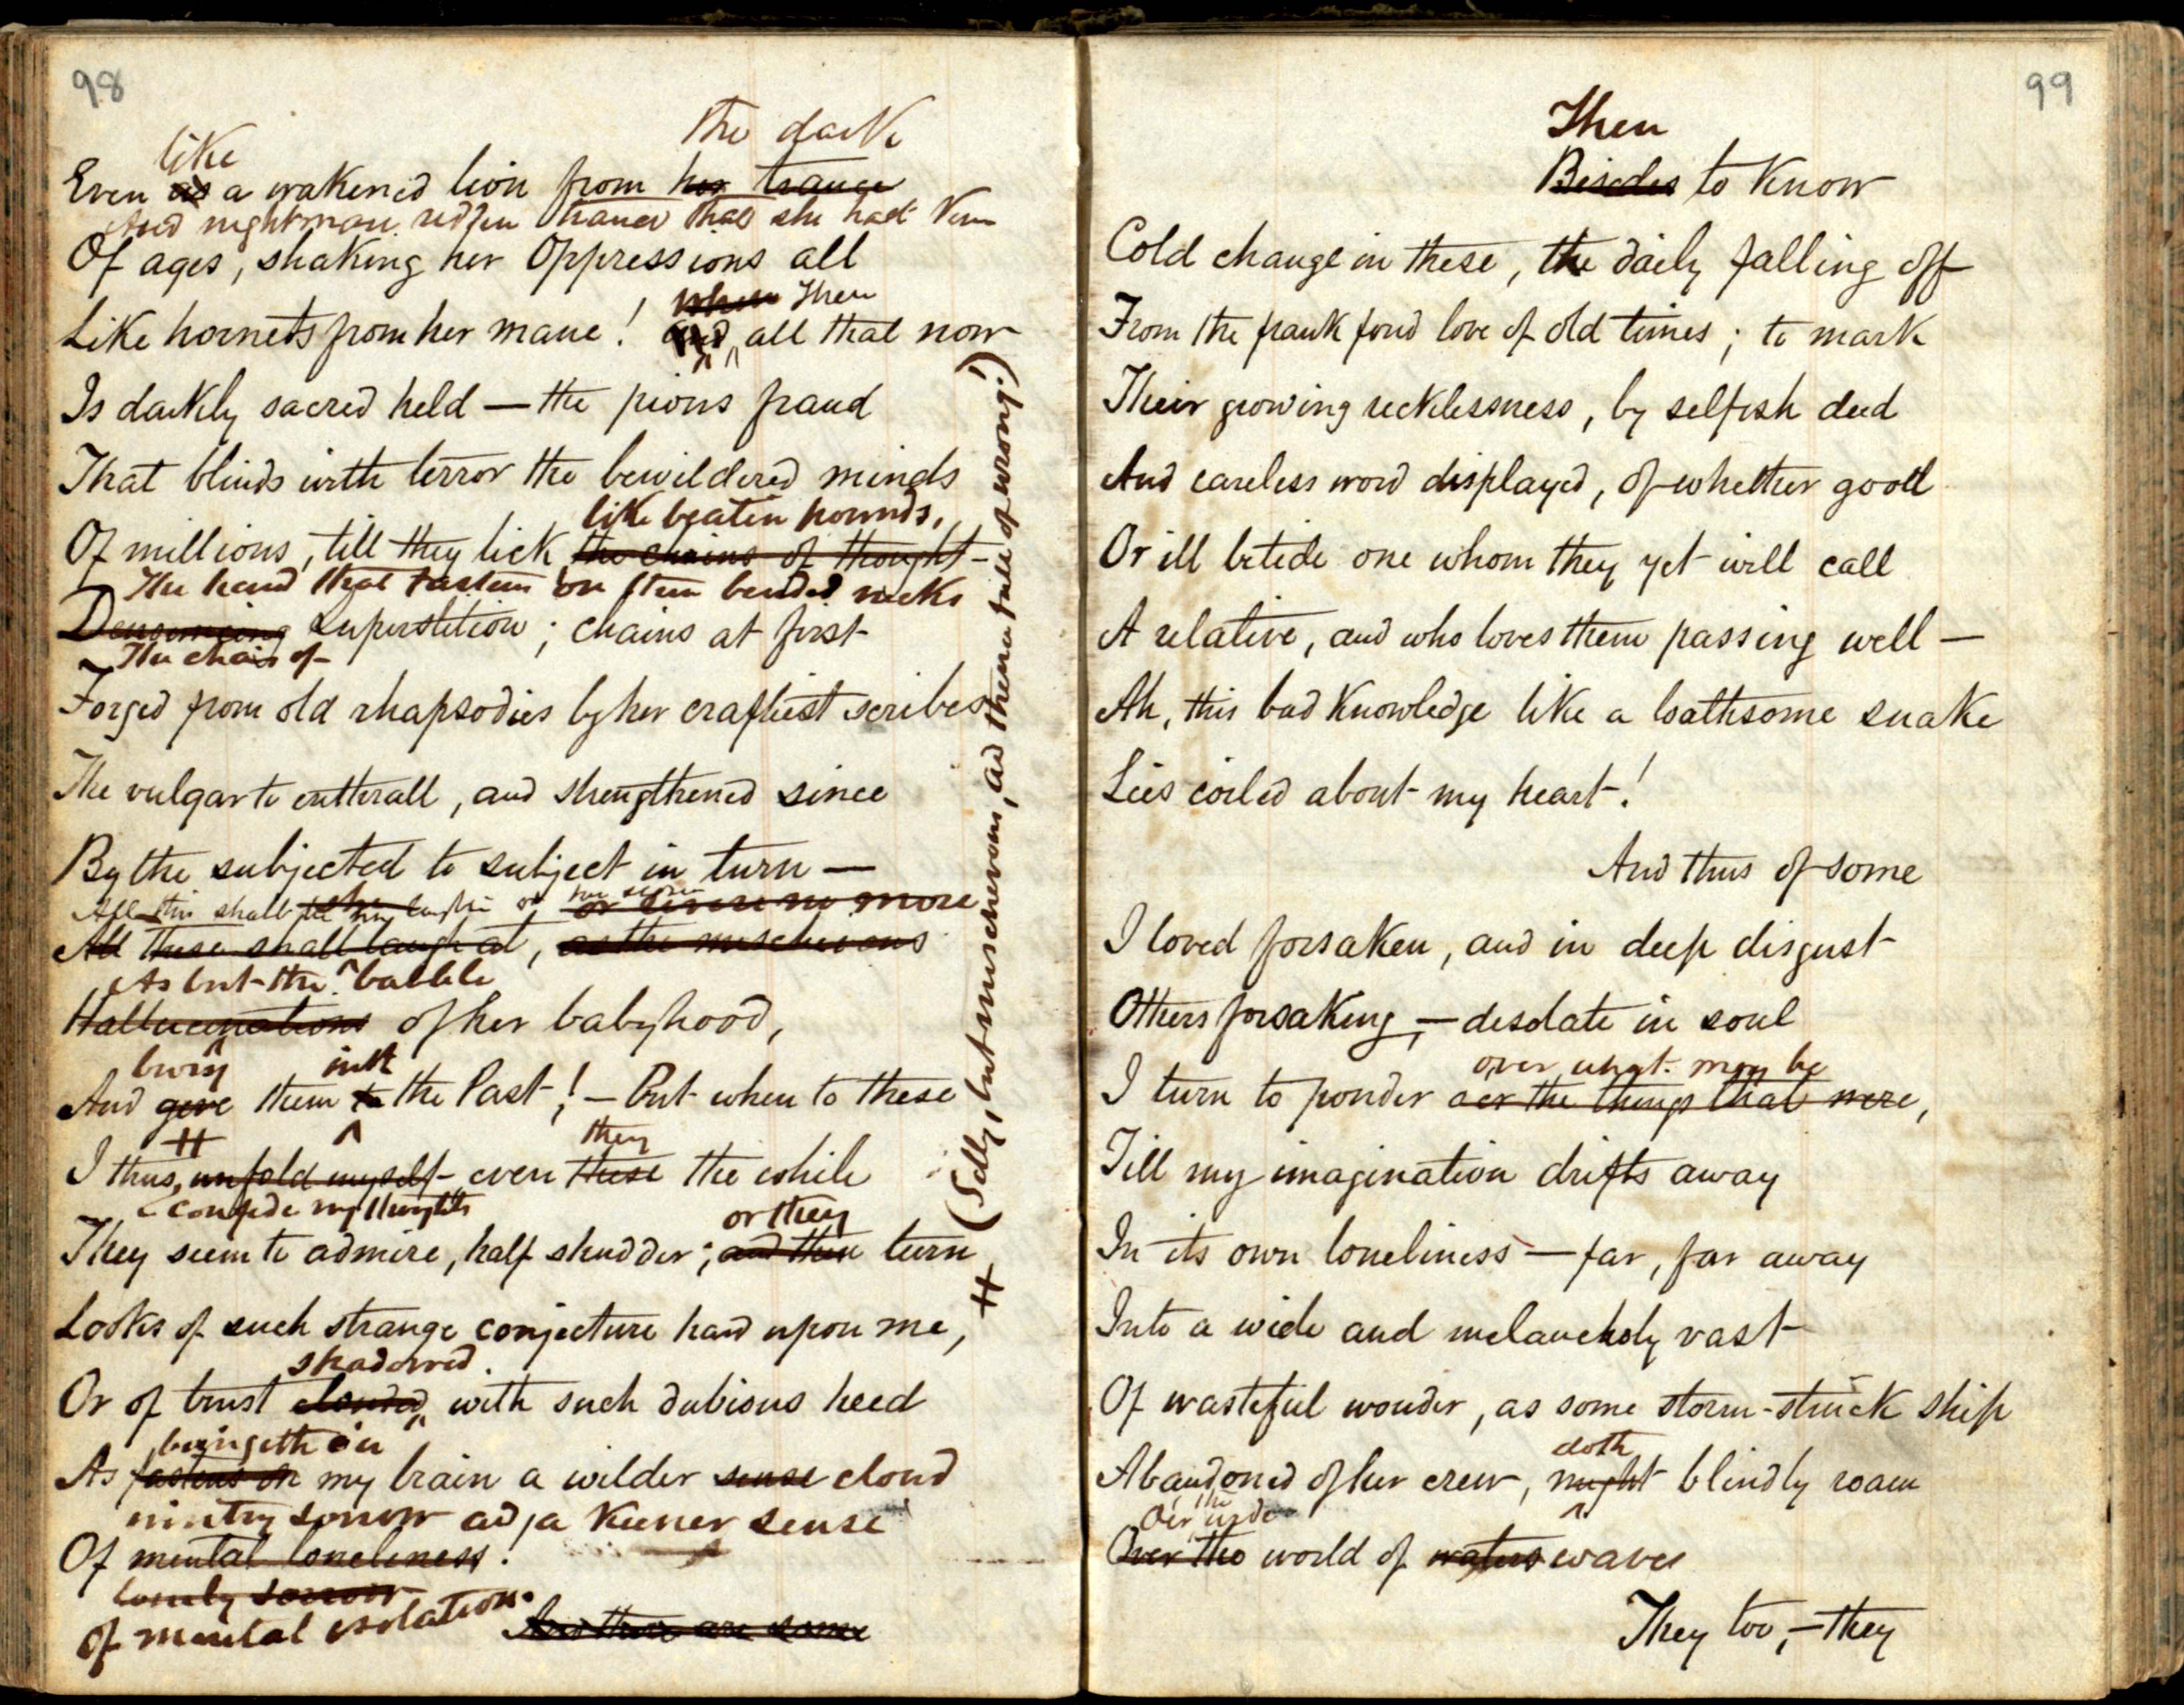 98
like
the dark
Even as a wakened lion from her trance
And nightmare ridden trance that she had
Of ages, shaking her Oppressions all
when Then
Like hornets from her mane! and all that now
Is darkly sacred held — the pious fraud
That blinds with terror the bewildered minds
like beaten hounds,
Of millions, till they lick the chains of thought —
The hand that fastens on their bended necks
Denouncing Superstition; chains at first
The chain of
Forged from old rhapsodies by her craftiest scribes
The vulgar to enthrall, and strengthened since
By the subjected to subject in turn —
All this shall she laugh or no more
All these shall laugh at, as the mischievous
As but the babble
Hallucinations of her babyhood,
bury into
And give them to the Past! — But when to these
H they
I thus, unfold myself even these the while
confide my thoughts
or they
They seem to admire, half shudder; and then turn
Looks of such strange conjecture hard upon me,
shadowed
Or of trust clouded, with such dubious heed
bringeth o'er
As fastens on my brain a wilder sense cloud
wintry sorrow and a keener sense
Of mental loneliness!
lonely sorrow
Of mental isolation.
And there are some
H (Silly, but mischievous, and thence full of wrong!)
99
Then
Besides to know
Cold change in these, the daily falling off
From the frank fond love of old times; to mark
Their growing recklessness, by selfish deed
And careless word displayed, of whether good
Or ill betide one whom they yet will call
A relative, and who loves them passing well —
Ah, this bad knowledge like a loathsome snake
Lies coiled about my heart!
And thus of some
I loved forsaken, and in deep disgust
Others forsaking, — desolate in soul
over what may be
I turn to ponder o'er the things that were,
Till my imagination drifts away
In its own loneliness — far, far away
Into a wide and melancholy vast
Of wasteful wonder, as some storm-struck ship
doth
Abandoned of her crew, might blindly roam
O'er the wide
Over the world of waters waves
They too, — they